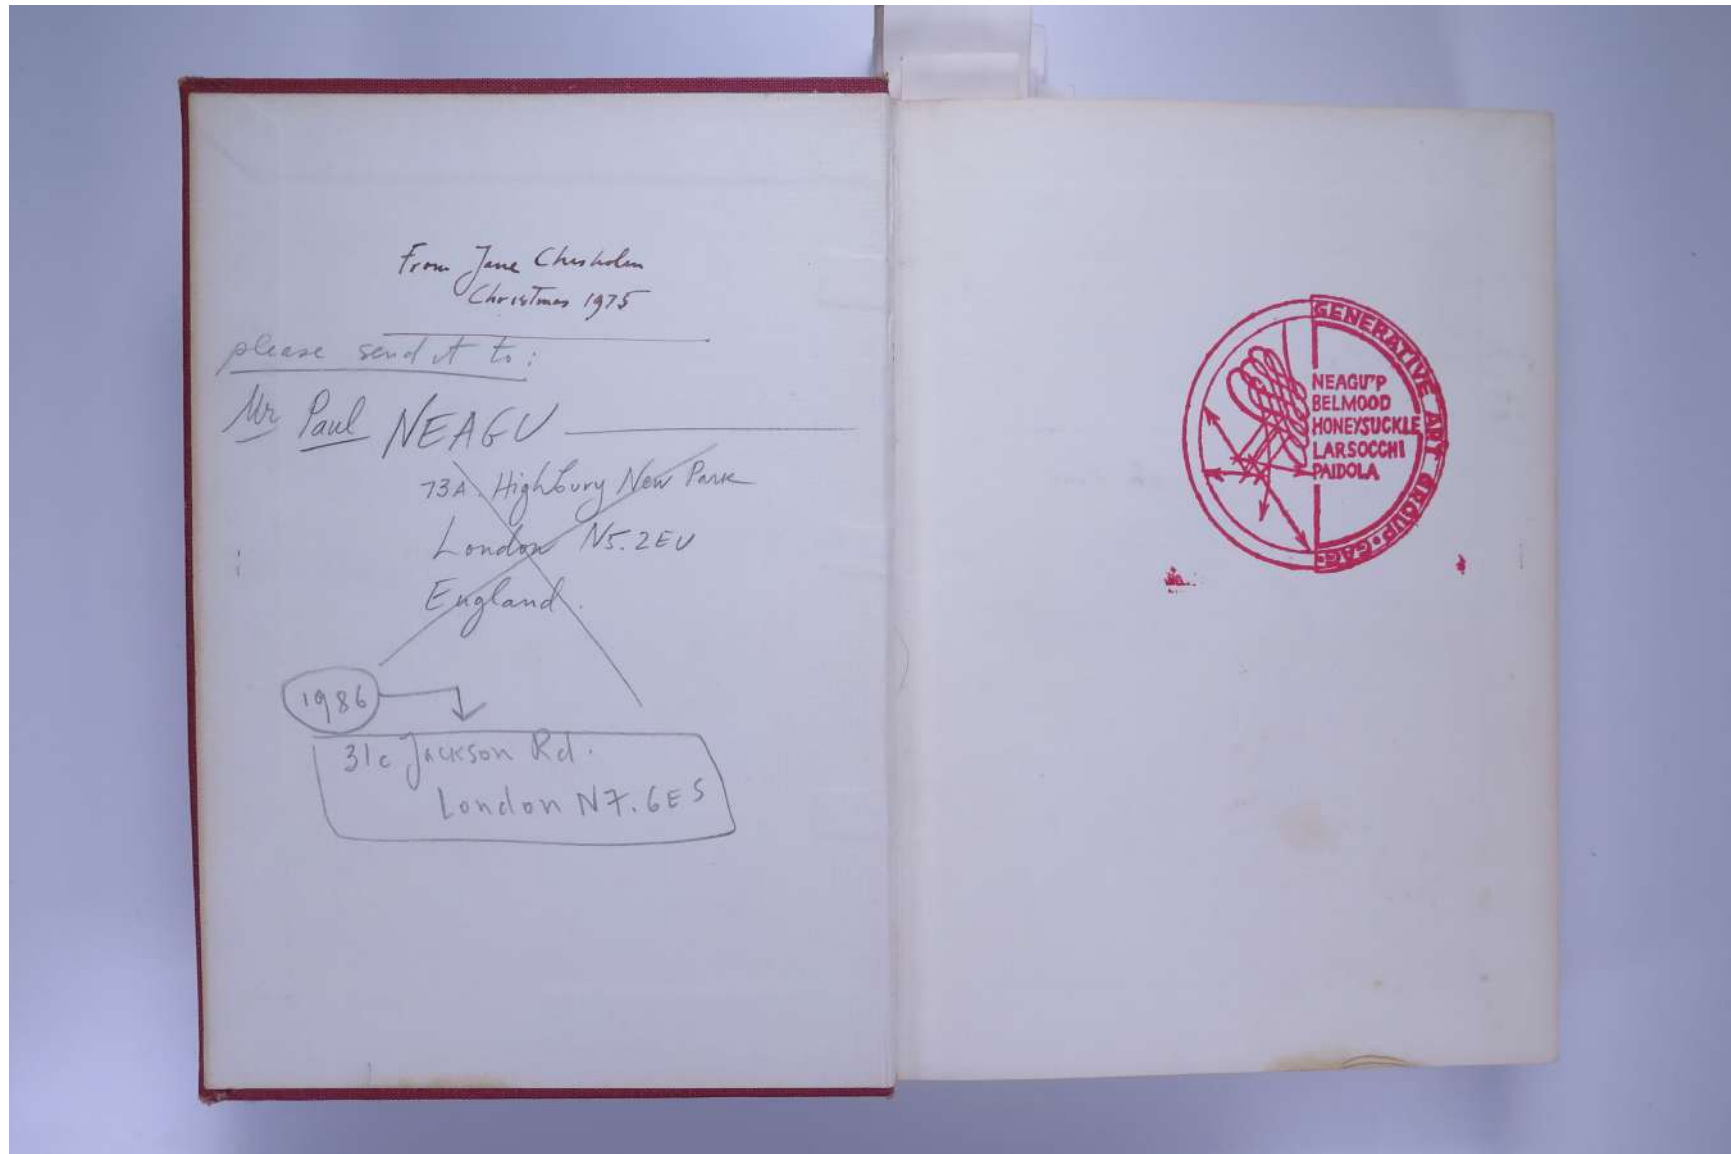 From Jane Chisholm
Christmas 1975
please send it to:
Mr Paul NEAGU
73A. Highbury New Park
London N5.2EU
England.
1986
31c Jackson Rd.
London N7.6ES
GENERATIVE ART GROUP • GAG
NEAGU'P
BELMOOD
HONEYSUCKLE
LARSOCCHI
PAIDOLA